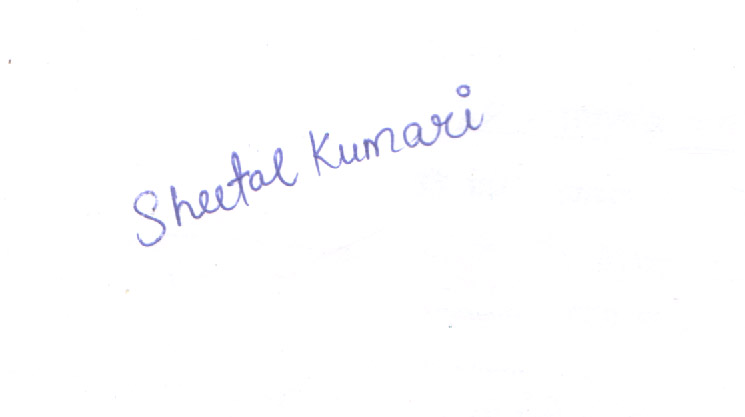 Sheetal Kumari